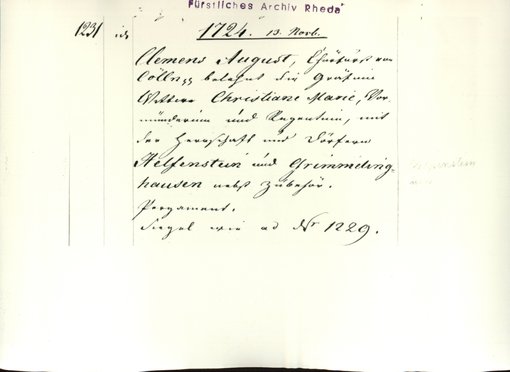 Fürstliches Archiv Rheda
1231 id 1724. 13. Novb.
Clemens August, Churfürst von
Cölln, belehnt die Gräfinn
Wittwe Christiane Marie, Vor-
münderinn und Regentinn, mit
der Herrschaft und Dörfern
Helfenstein und Grimmeling-
hausen nebst Zubehör.
Pergament.
Siegel wie ad Nr 1229.